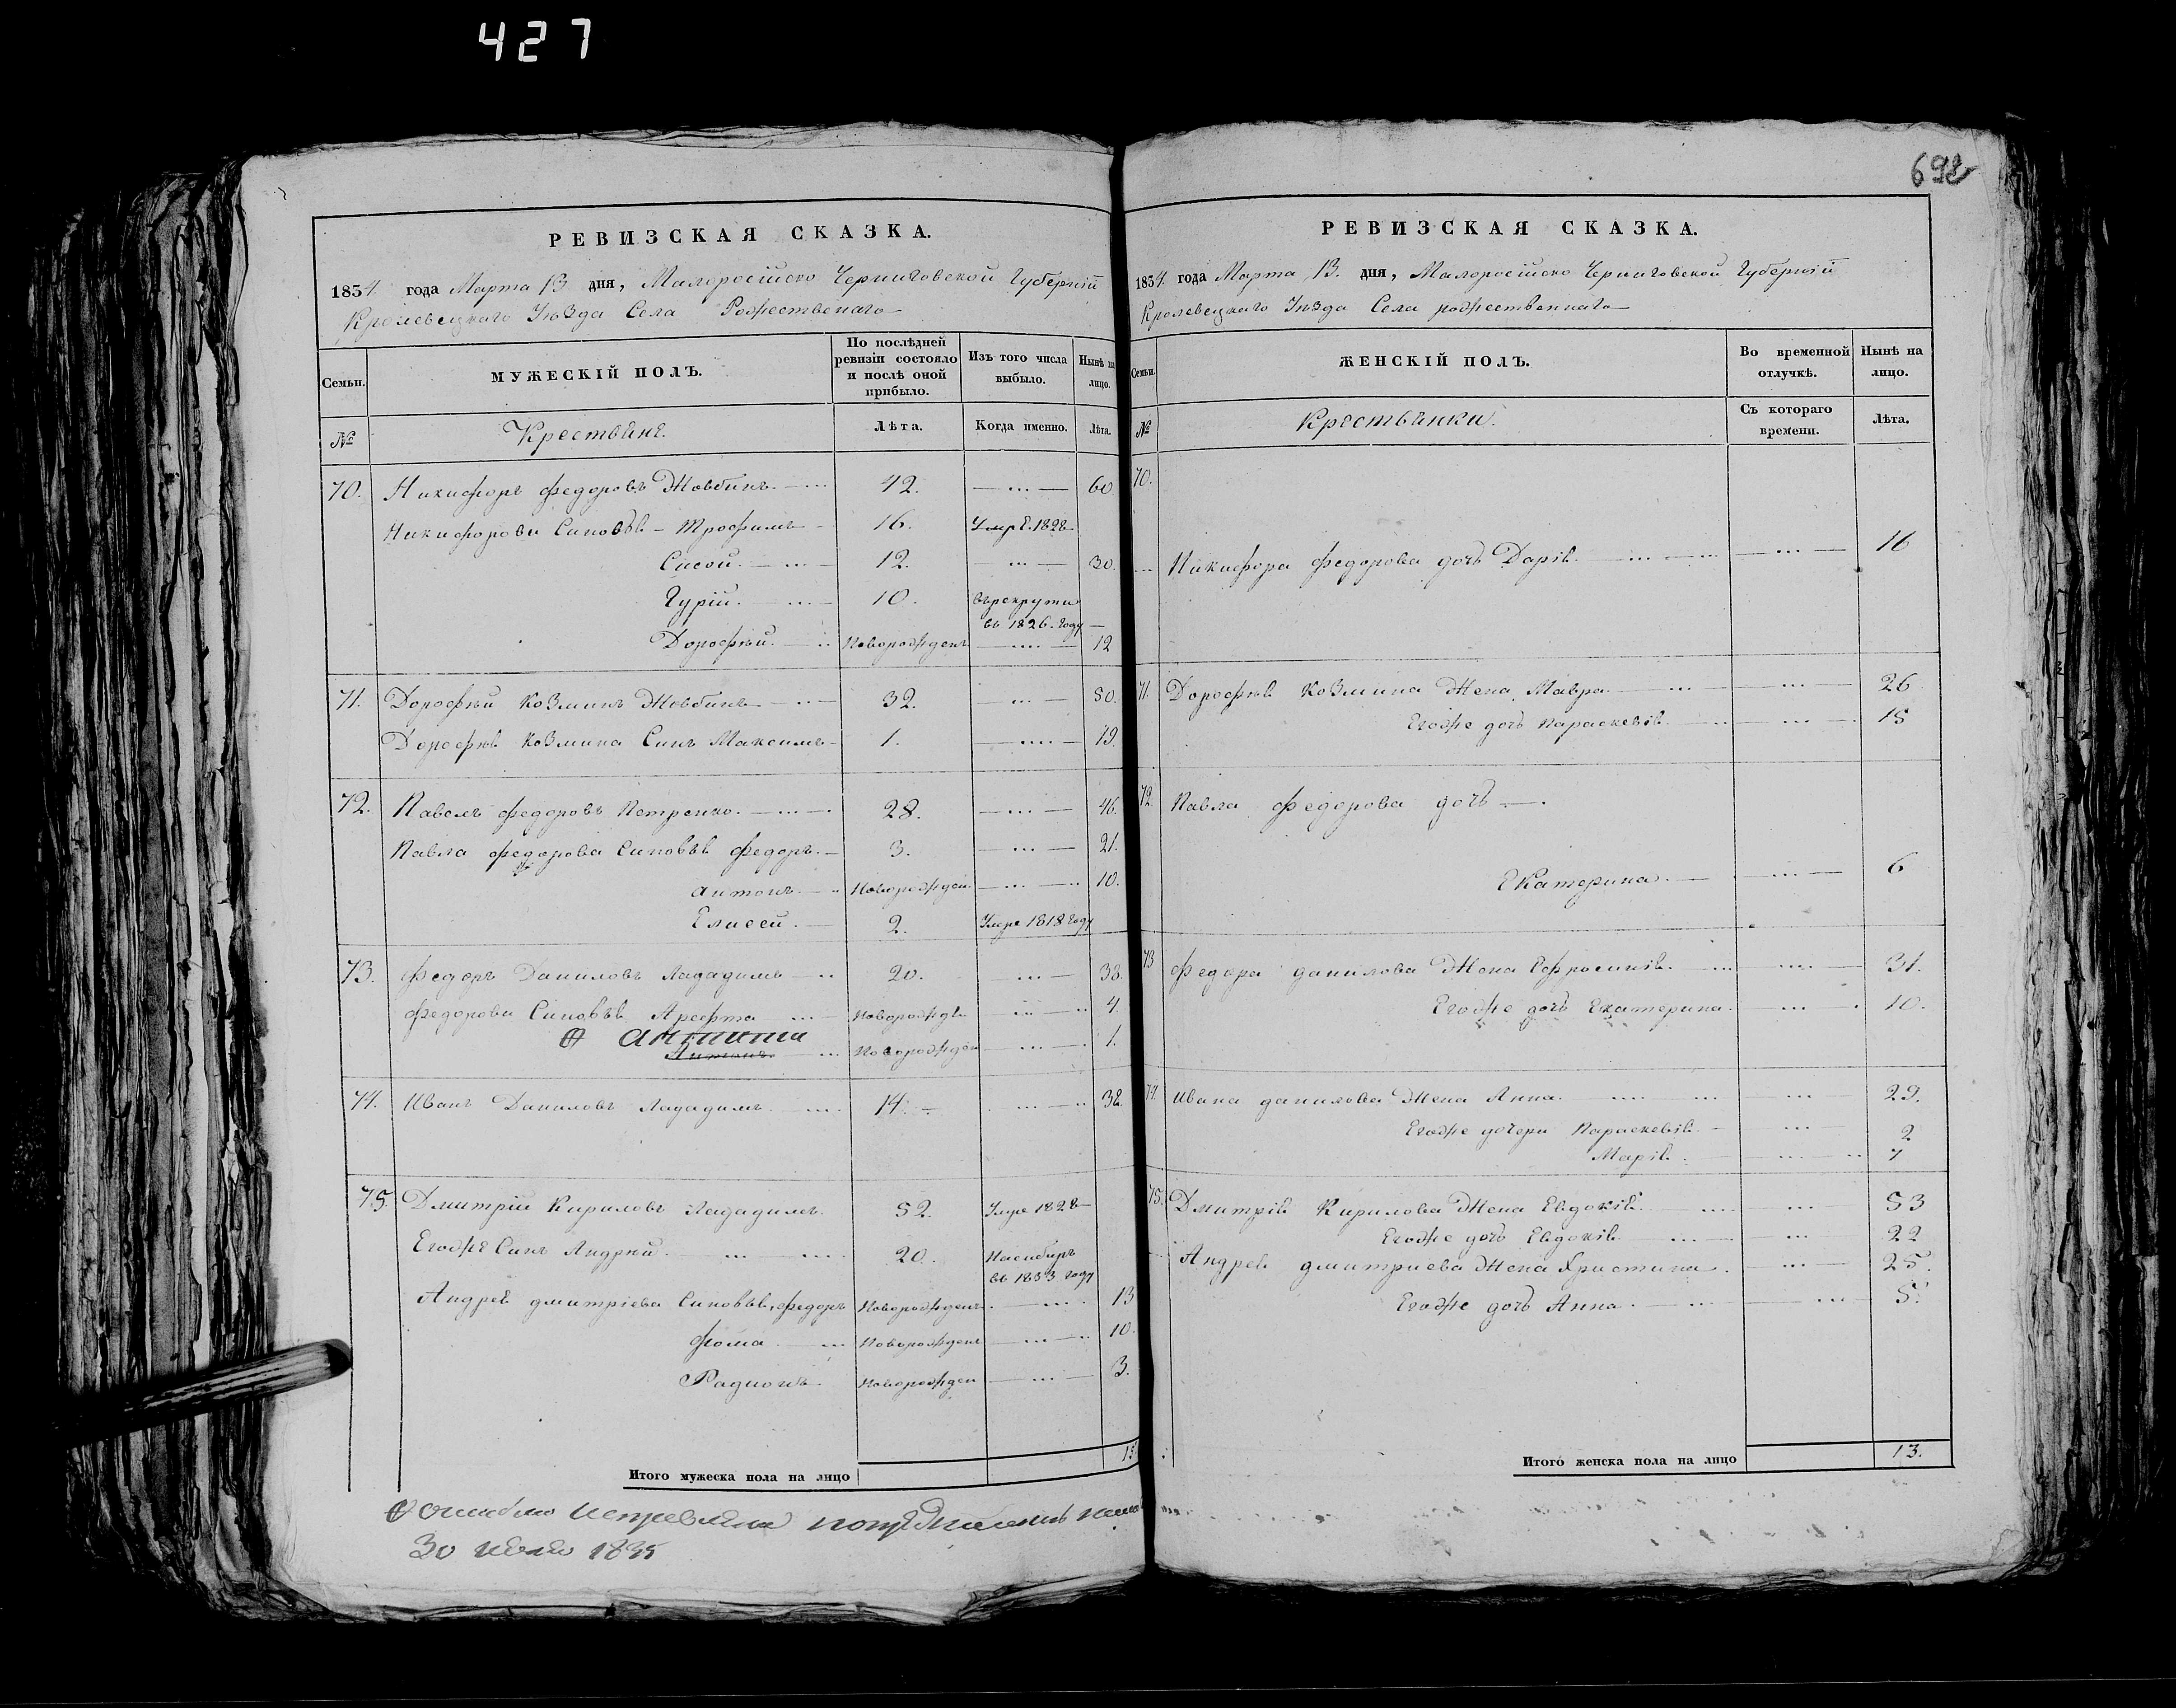 427
692
РЕВИЗСКАЯ СКАЗКА.
1834 года Марта 13 дня, Малоросійско Черниговской Губерній
Кролевецкаго Уѣзда Села Рождественаго
Семьи. МУЖЕСКІЙ ПОЛЪ. По послѣдней ревизіи состояло и послѣ оной прибыло. Изъ того числа выбыло. Нынѣ на лицо.
№ Крестьяне. Лѣта. Когда именно. Лѣта.
70. Никифоръ Федоровъ Жовбинъ 42. 60
Никифорови Синовья Трофимъ 16. Умре 1828
Сисой. 12. 30.
Гурій. 10. Върекруты
въ 1826. году
Дорофѣй. Новорожденъ 12
71. Дорофѣй Козминъ Жовбинъ 32. 50.
Дорофѣя Козмина Синъ Максимъ 1. 19.
72. Павелъ Федоровъ Петренко. 28. 46.
Павла Федорова Синовья Федоръ. 3. 21.
Антонъ. Новорожден. 10.
Елисей. 2. Умре 1818 году
73. Федоръ Даниловъ 20. 38.
Федорови Синовья Арефта Новорождъ 4
Антонъ. Новорожден 1.
74. Иванъ Даниловъ 14. 32.
75. Дмитрій Кириловъ 52. Умре 1828
Егоже Синъ Андрей. 20. Насибиръ
въ 1833 году
Андрея Дмитріева Синовья, Федоръ Новорожденъ 13
Фома Новорожденъ 10.
Радионъ Новорожден 3.
Итого мужеска пола на лицо 15
30 1835
РЕВИЗСКАЯ СКАЗКА.
1834 года Марта 13. дня, Малоросійско Черниговской Губерній
Кролевецкаго Уѣзда Села рождественнаго
Семьи. ЖЕНСКІЙ ПОЛЪ. Во временной отлучкѣ. Нынѣ на лицо.
№ Крестьянки. Съ котораго времени. Лѣта.
70.
Никифора Федорова дочь Дарія. 16
71. Дорофѣя Козмина Жена Мавра 26
Егоже дочь Параскевія. 15
72 Павла Федорова дочь
Екатерина. 6
73 Федора данилова Жена Ефросинія. 31.
Егоже дочь Екатерина. 10.
74. Ивана данилова Жена Анна. 29.
Егоже дочери Параскевія. 2
Марія. 7
75. Дмитрія Кирилова Жена Евдокія. 53
Егоже дочь Евдокія. 22
Андрея дмитриева Жена Христина. 25.
Егоже дочь Анна. 5.
Итого женска пола на лицо 13.